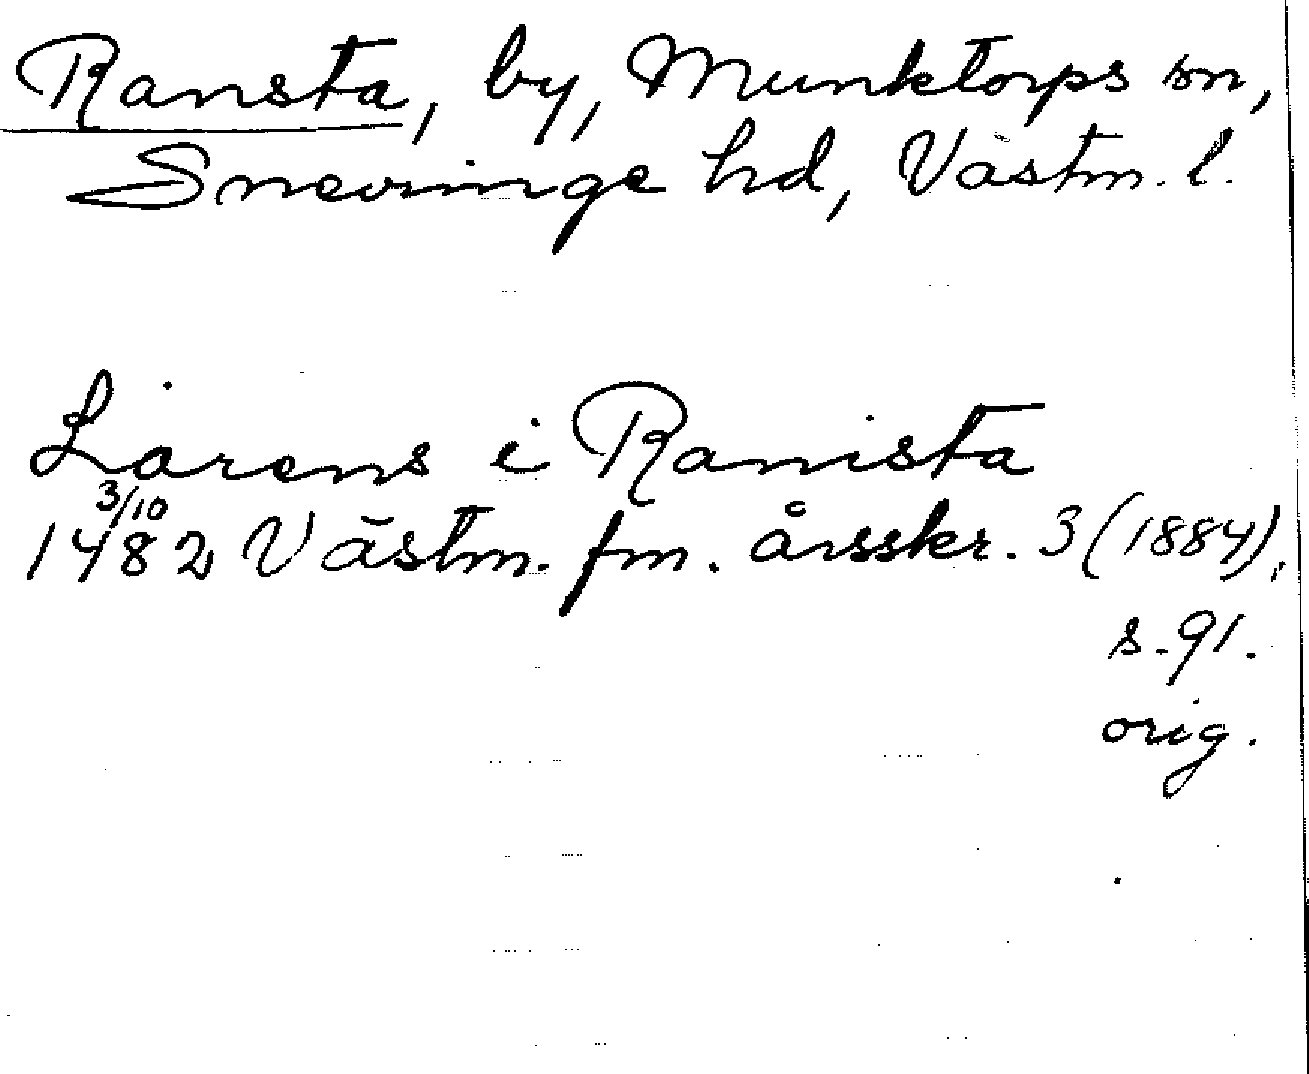 Ransta, by, Munktorps sn,
Snevringe hd, Västm. l.
Larens i Ranista
3/10
1482 Västm. fm. årsskr. 3 (1884),
s. 91.
orig.